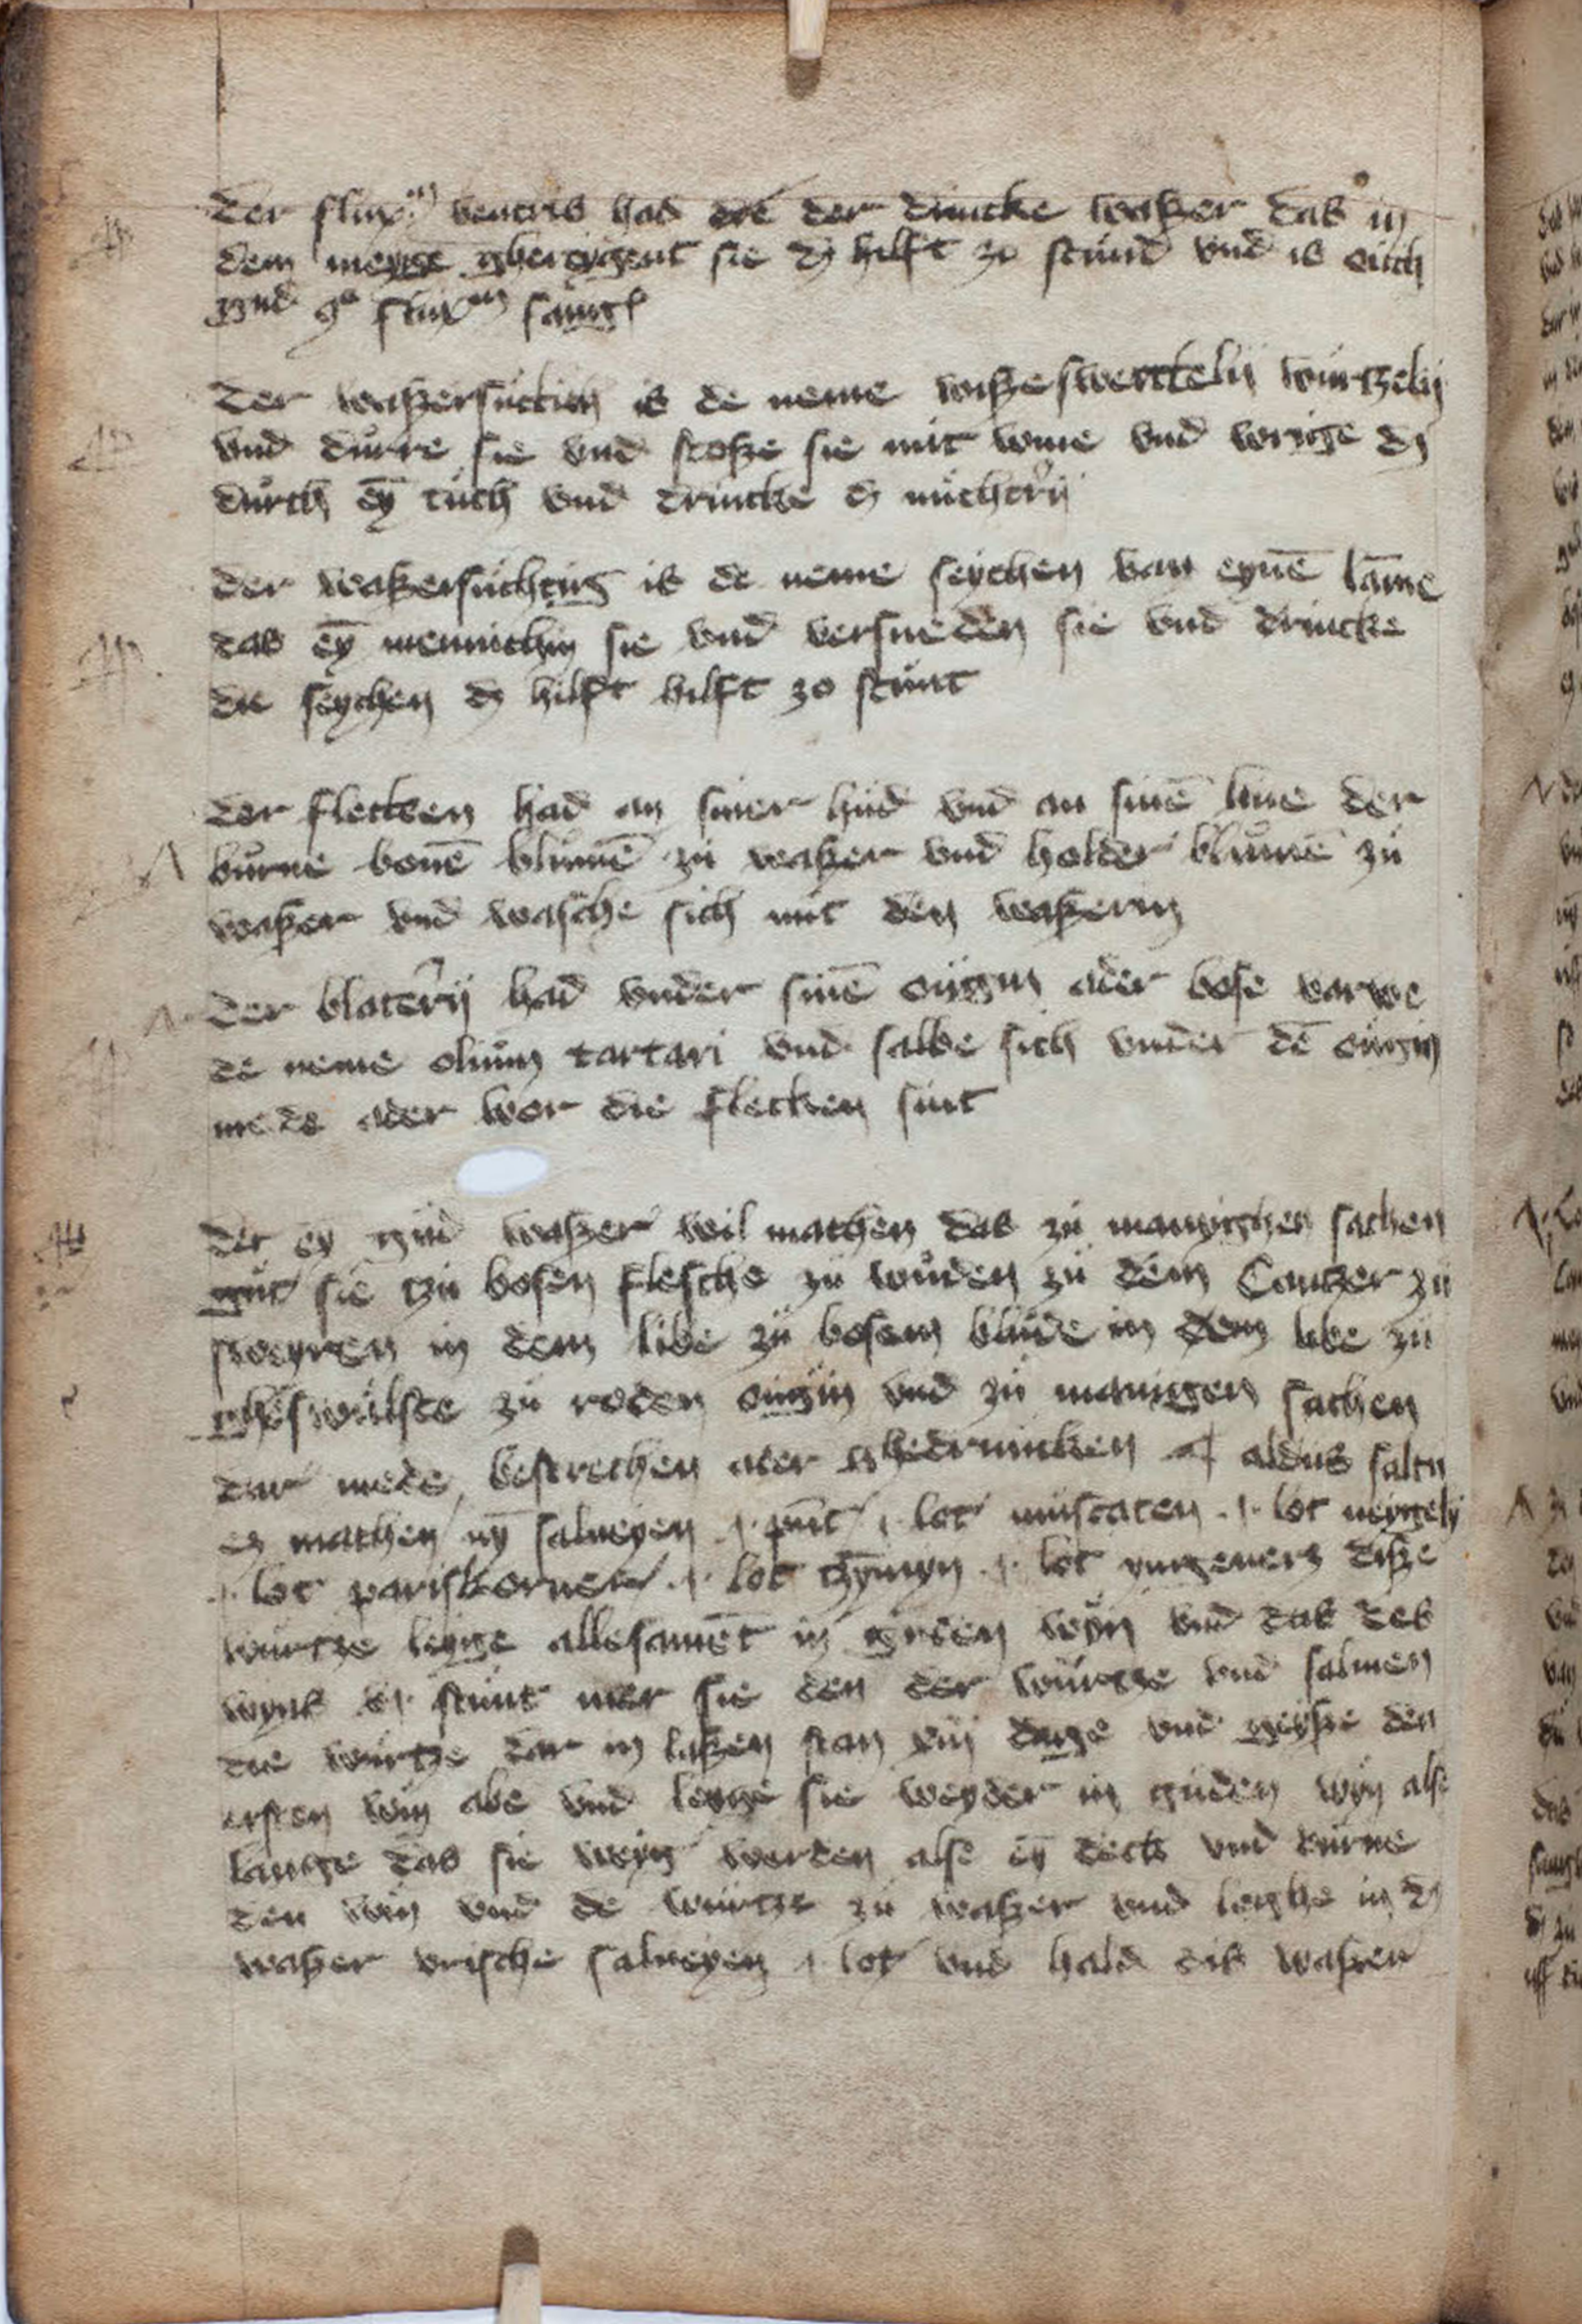 Der fluxum ventris had der drincke waßer das in
dem meyge ghereygent sie dz hilft zo stund vnd is ouch
gud ꝯtra fluxum sangͥs
Der waßersuchtich is de neme wiße swertteln wurtzeln
vnd durre sie vnd stoße sie mit wine vnd wringe dz
durch eȳ tuch vnd drincke dz nuchtern
Der waßersuchtig is de neme seychen van eynē lāme
das eȳ mennichin sie vnd versneden sie vnd drincke
die seychen dz hilft hilft zo stunt
Der flecken had an siner hud vnd an sinē liue der
burne bonē blumē zu waßer vnd holder blumē zu
waßer vnd wasche sich mit den waßern
Der blatern had vnder sinē ougin ader bose varwe
de neme olium tartari vnd salbe sich vnder dē ougin
mede ader wor die flecken sint
Der ey gud waßer wil machen das zu manyghen sachen
gut sie zu bosen flesche zu wuden zu dem Cantzer zu
sweyren in dem libe zu bosem blude in dem libe zu
gheswulste zu roden ougin vnd zu manigen sachen
dar mede bestrechen ader ghedrincken aldus saltu
ez machen nȳ salueyen .j. punt .j. lot muscaten .j. lot neygely
.j. lot pariskorner .j. lot .j. lot yngeuers diße
wurtze leyge allesamēt in guden wyn vnd das des
wyns stunt mer sie den der wurtze vnd saluien
die wurtze dar in laßen stan viij dage vnd geyße den
ersten win abe vnd leyge sie weyder in guden wyn alse
lange das sie werden alse eȳ deck vnd burne
den win vnd de wurtze zu waßer vnd leghe in dz
waßer vrische salueyen .j. lot vnd hald dis waßer